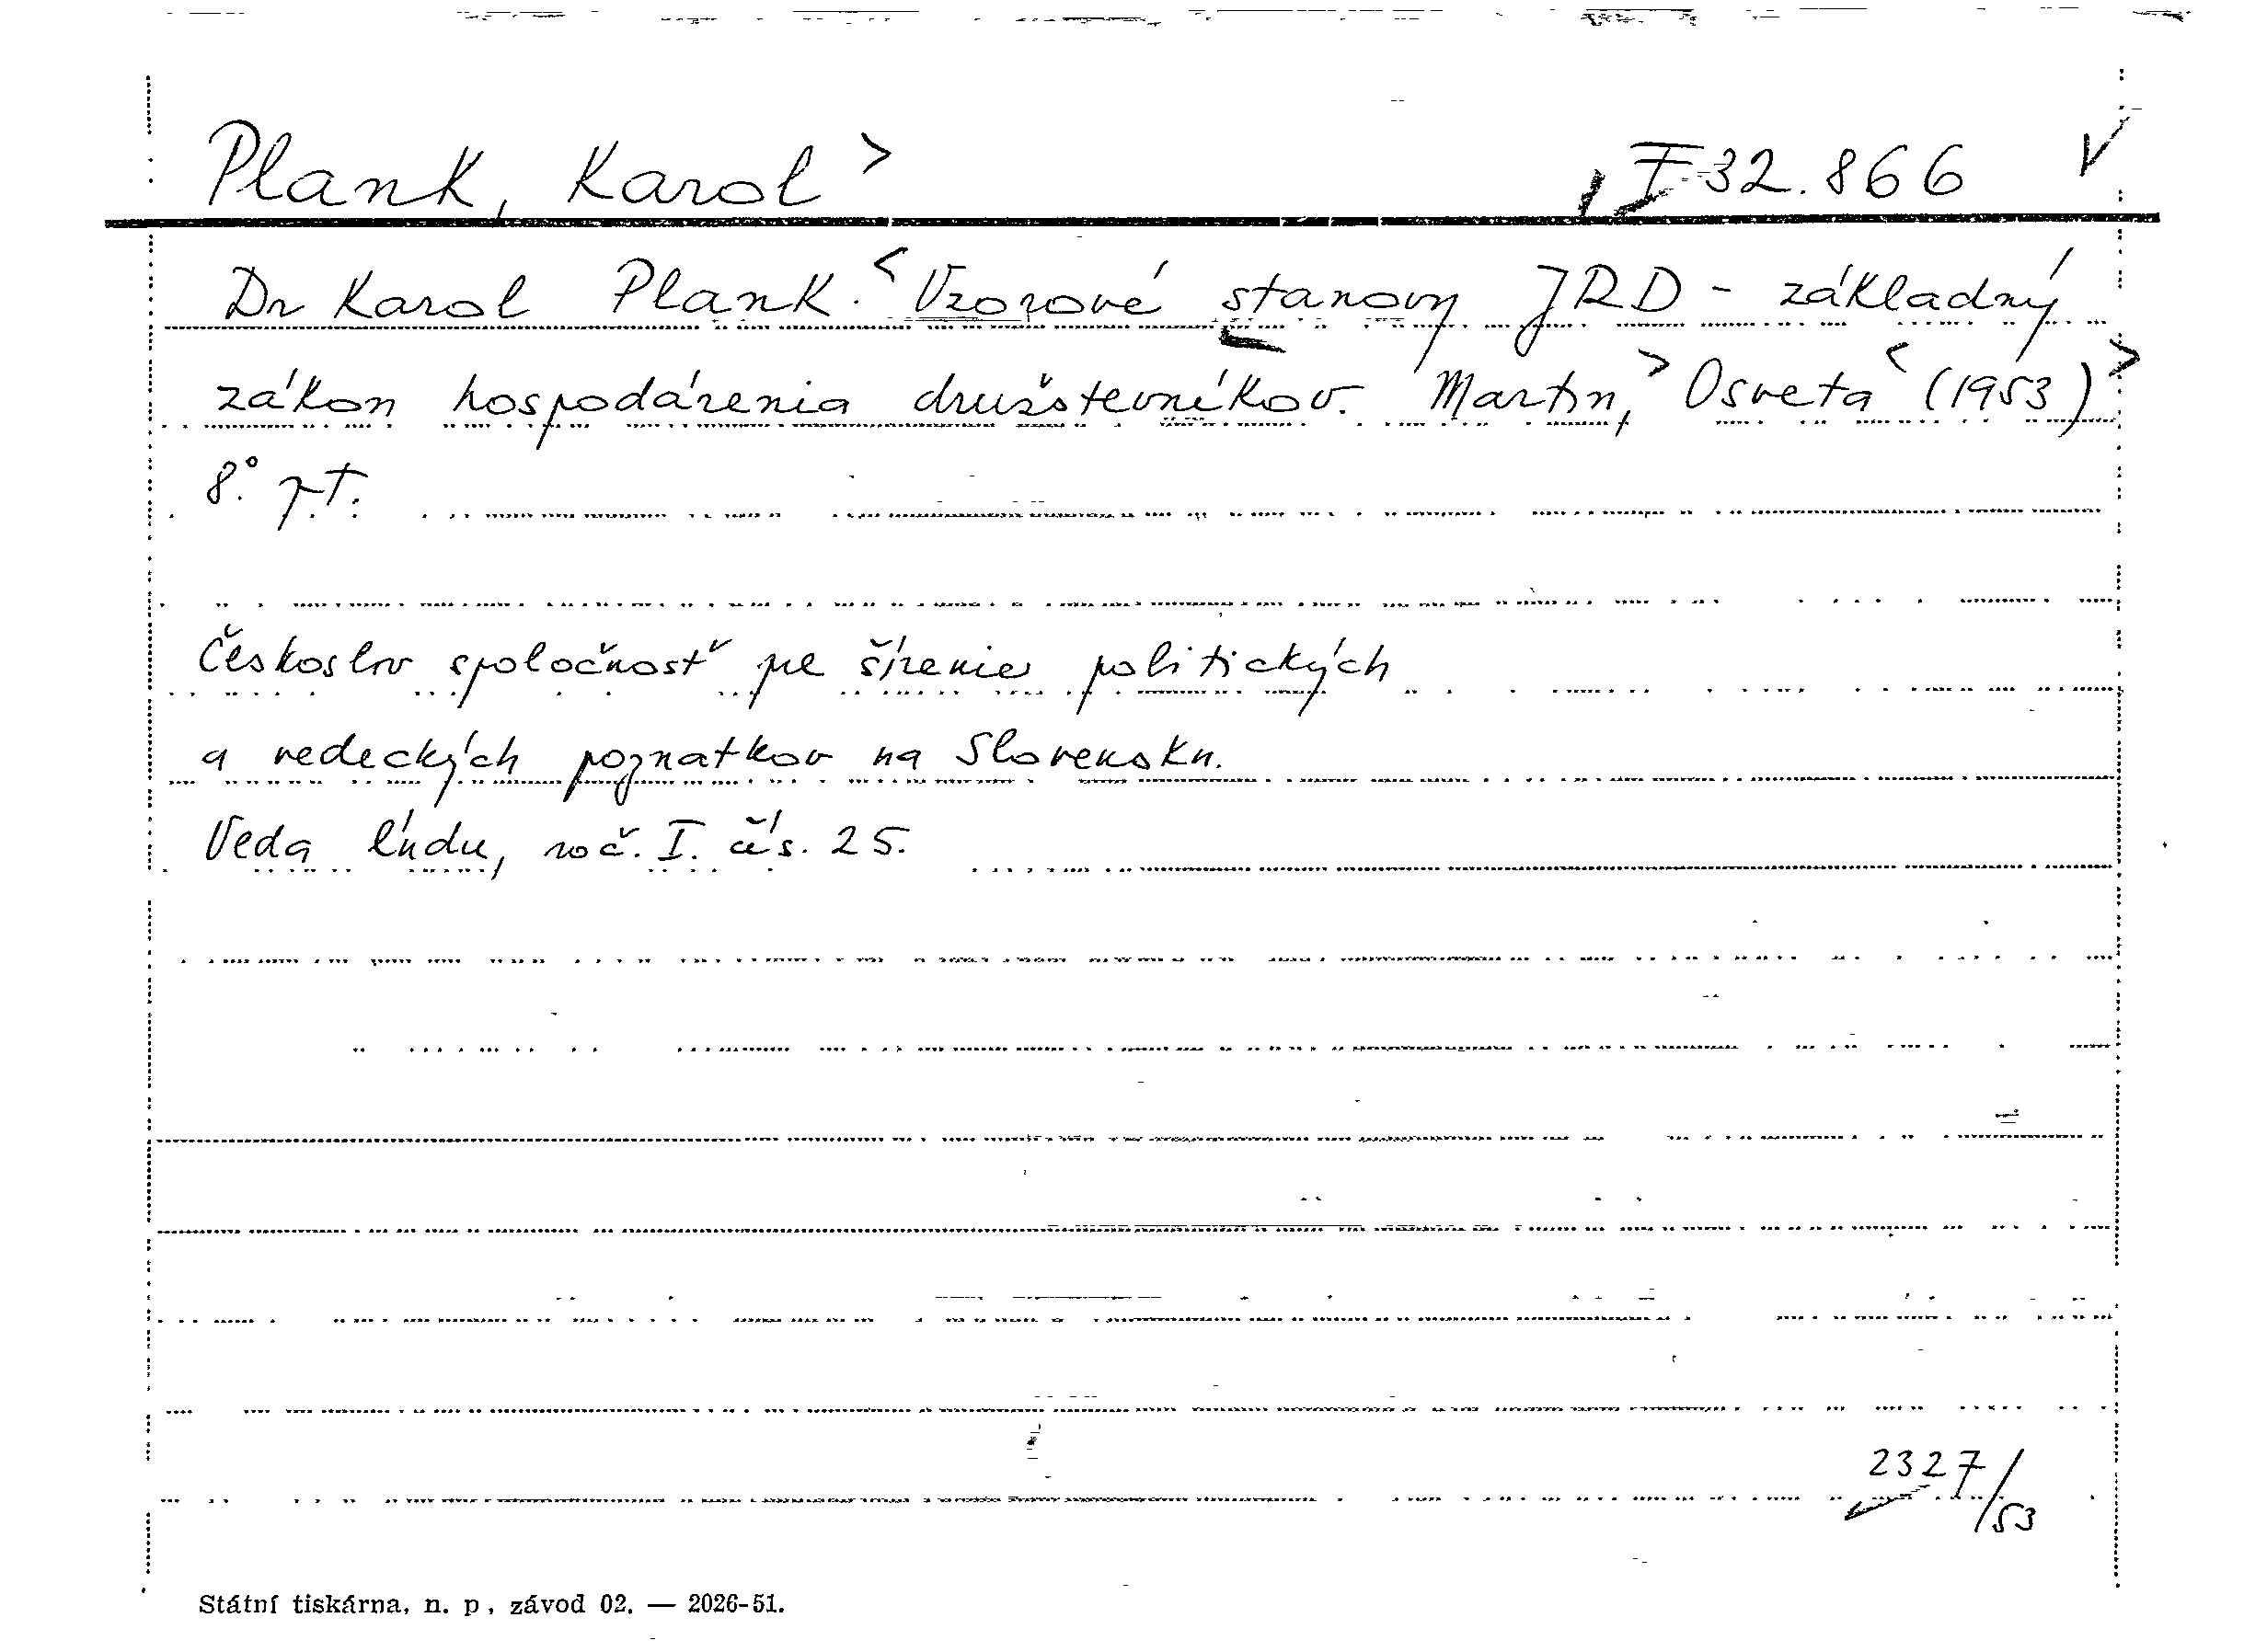 Plank, Karol > I 32.866 V
Dr Karol Plank. < Vzorové stanovy JRD - základný
zákon hospodárenia družstevníkov. Martin, > Osveta < (1953) >
8°. p.T.
Českoslov spoločnosť pre šírenie politických
a vedeckých poznatkov na Slovensku.
Veda ľudu, roč. I. čís. 25.
2327/53
Státní tiskárna, n. p., závod 02. — 2026-51.